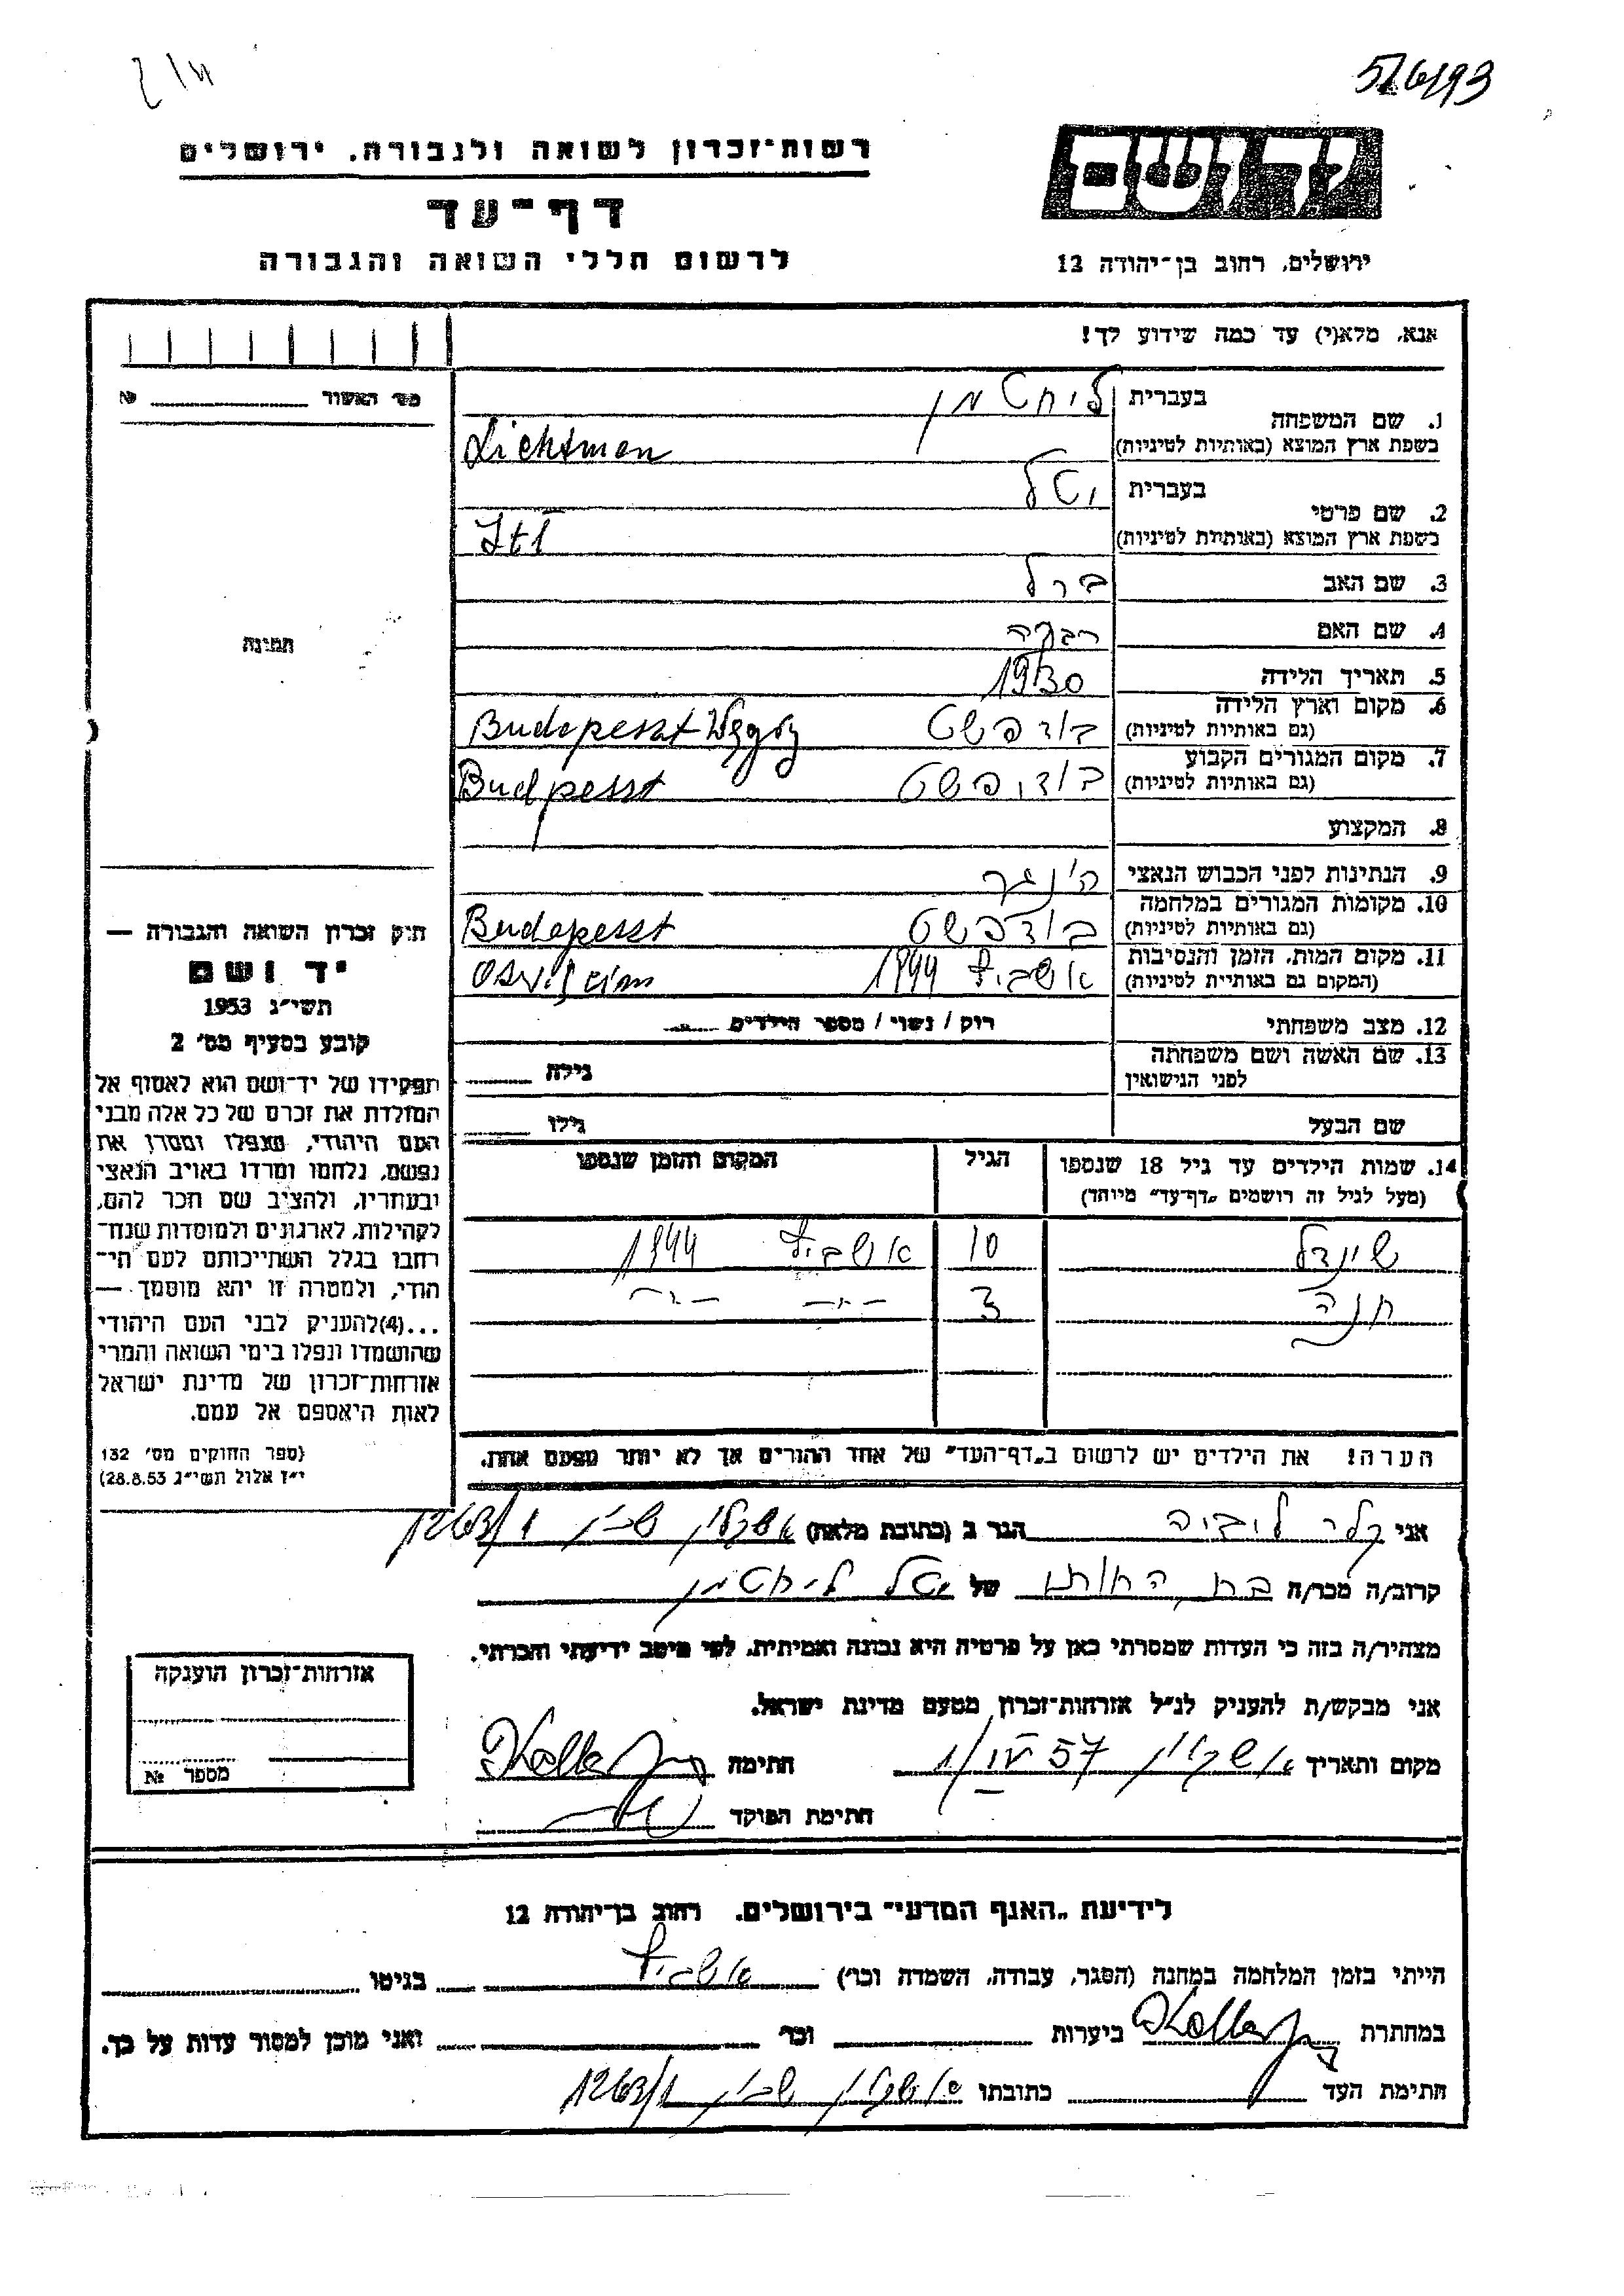 5/6/93
רשות־זכרון לשואה ולגבורה. ירושלים
דף־עד
לרשום חללי השואה והגבורה
יד ושם
ירושלים, רחוב בן־יהודה 12
אנא, מלא(י) עד כמה שידוע לך!
מס׳ האשור № 
1. שם המשפחה בעברית ליחטמן
בשפת ארץ המוצא (באותיות לטיניות) Lichtman
2. שם פרטי בעברית יטל
בשפת ארץ המוצא (באותיות לטיניות)
3. שם האב ברל
4. שם האם רבקה
5. תאריך הלידה 1930
6. מקום וארץ הלידה (גם באותיות לטיניות) בודפשט Budapesst
7. מקום המגורים הקבוע (גם באותיות לטיניות) בודפשט Budpesst
8. המקצוע
9. הנתינות לפני הכבוש הנאצי
10. מקומות המגורים במלחמה (גם באותיות לטיניות) בודפשט Budapesst
11. מקום המות, הזמן והנסיבות (המקום גם באותיות לטיניות) אשביץ 1944
12. מצב משפחתי רוק / נשוי / מספר הילדים
13. שם האשה ושם משפחתה לפני הנישואין גילה
שם הבעל גילו
14. שמות הילדים עד גיל 18 שנספו הגיל המקום והזמן שנספו
(מעל לגיל זה רושמים „דף־עד״ מיוחד)
שינדל 10 אשביץ 1944
חנה 3 -״- -״-
הערה! את הילדים יש לרשום ב„דף־העד״ של אחד ההורים אך לא יותר מפעם אחת.
תמונה
חוק זכרון השואה והגבורה —
יד ושם
תשי״ג 1953
קובע בסעיף מס׳ 2
תפקידו של יד־ושם הוא לאסוף אל
המולדת את זכרם של כל אלה מבני
העם היהודי, שנפלו ומסרו את
נפשם, נלחמו ומרדו באויב הנאצי
ובעוזריו, ולהציב שם וזכר להם,
לקהילות, לארגונים ולמוסדות שנח־
רבו בגלל השתייכותם לעם הי־
הודי, ולמטרה זו יהא מוסמך —
...(4)להעניק לבני העם היהודי
שהושמדו ונפלו בימי השואה והמרי
אזרחות־זכרון של מדינת ישראל
לאות היאספם אל עמם.
(ספר החוקים מס׳ 132
י״ז אלול תשי״ג 28.8.53)
אני קלר ליביה הגר ב (כתובת מלאה) אשקלון שכון 1263/1
קרוב/ה מכר/ה בת אחותו של יטל ליחטמן
מצהיר/ה בזה כי העדות שמסרתי כאן על פרטיה היא נכונה ואמיתית, לפי מיטב ידיעתי והכרתי.
אני מבקש/ת להעניק לנ״ל אזרחות־זכרון מטעם מדינת ישראל.
מקום ותאריך אשקלון חתימה
חתימת הפוקד
אזרחות־זכרון הוענקה
מספר №
לידיעת „האגף המדעי״ בירושלים. רחוב בן־יהודה 12
הייתי בזמן המלחמה במחנה (הסגר, עבודה, השמדה וכו׳) אשביץ בגיטו
במחתרת ביערות וכו׳ ואני מוכן למסור עדות על כך.
חתימת העד כתובתו אשקלון שכון 1263/1